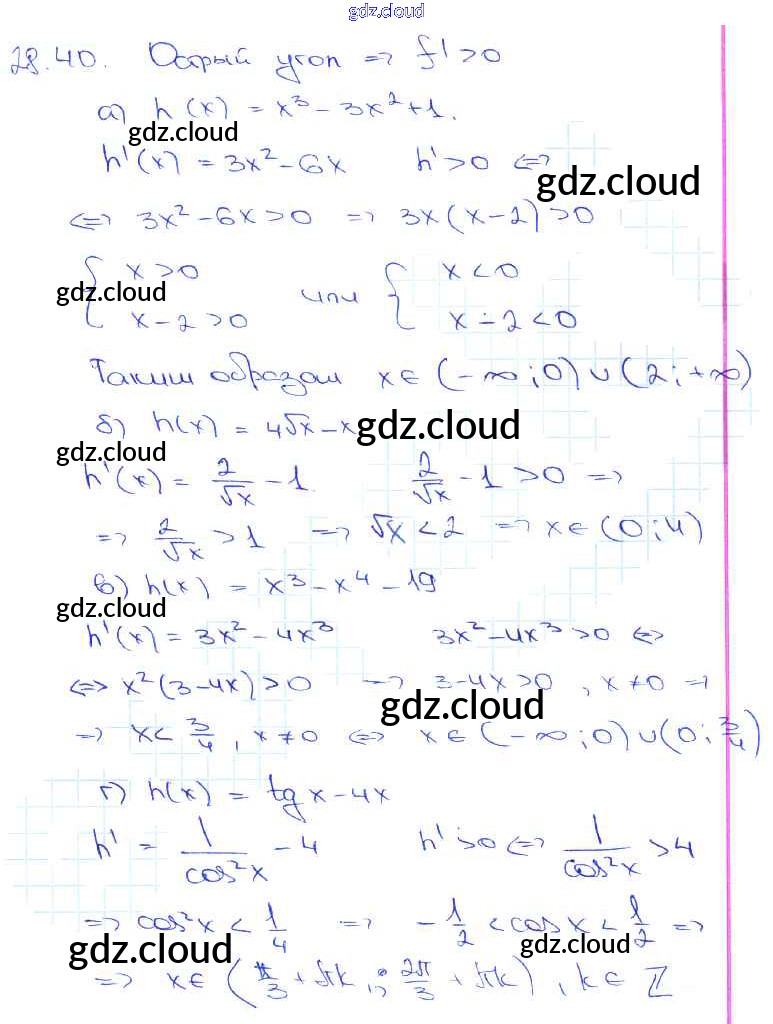 gdz.cloud
28.40. Острый угол => f' > 0
а) h(x) = x³ - 3x² + 1.
gdz.cloud
h'(x) = 3x² - 6x h' > 0 <=>
gdz.cloud
<=> 3x² - 6x > 0 => 3x(x-2) > 0
{ x > 0 или { x < 0
gdz.cloud
x - 2 > 0 x - 2 < 0
Таким образом x ∈ (-∞; 0) ∪ (2; +∞)
б) h(x) = 4√x - x gdz.cloud
gdz.cloud
h'(x) = 2/√x - 1. 2/√x - 1 > 0 =>
=> 2/√x > 1 => √x < 2 => x ∈ (0; 4)
в) h(x) = x³ - x⁴ - 19
gdz.cloud
h'(x) = 3x² - 4x³ 3x² - 4x³ > 0 <=>
<=> x²(3-4x) > 0 => 3-4x > 0, x ≠ 0 =>
gdz.cloud
=> x < 3/4, x ≠ 0 <=> x ∈ (-∞; 0) ∪ (0; 3/4)
г) h(x) = tg x - 4x
h' = 1/cos²x - 4 h' > 0 <=> 1/cos²x > 4
=> cos²x < 1/4 => -1/2 < cos x < 1/2 =>
gdz.cloud gdz.cloud
=> x ∈ (π/3 + πk; 2π/3 + πk), k ∈ ℤ